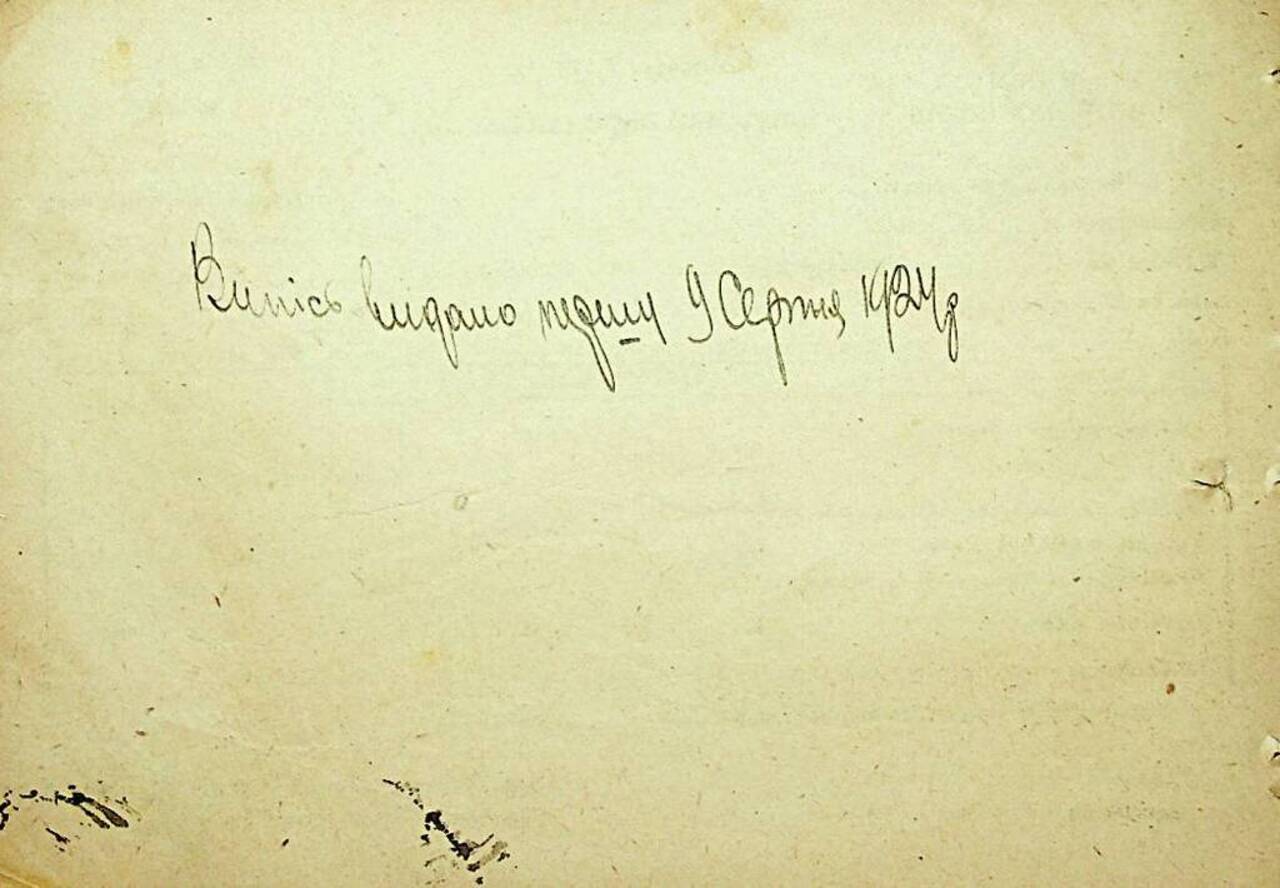 Випісь видано першу 9 Серпня 1924р